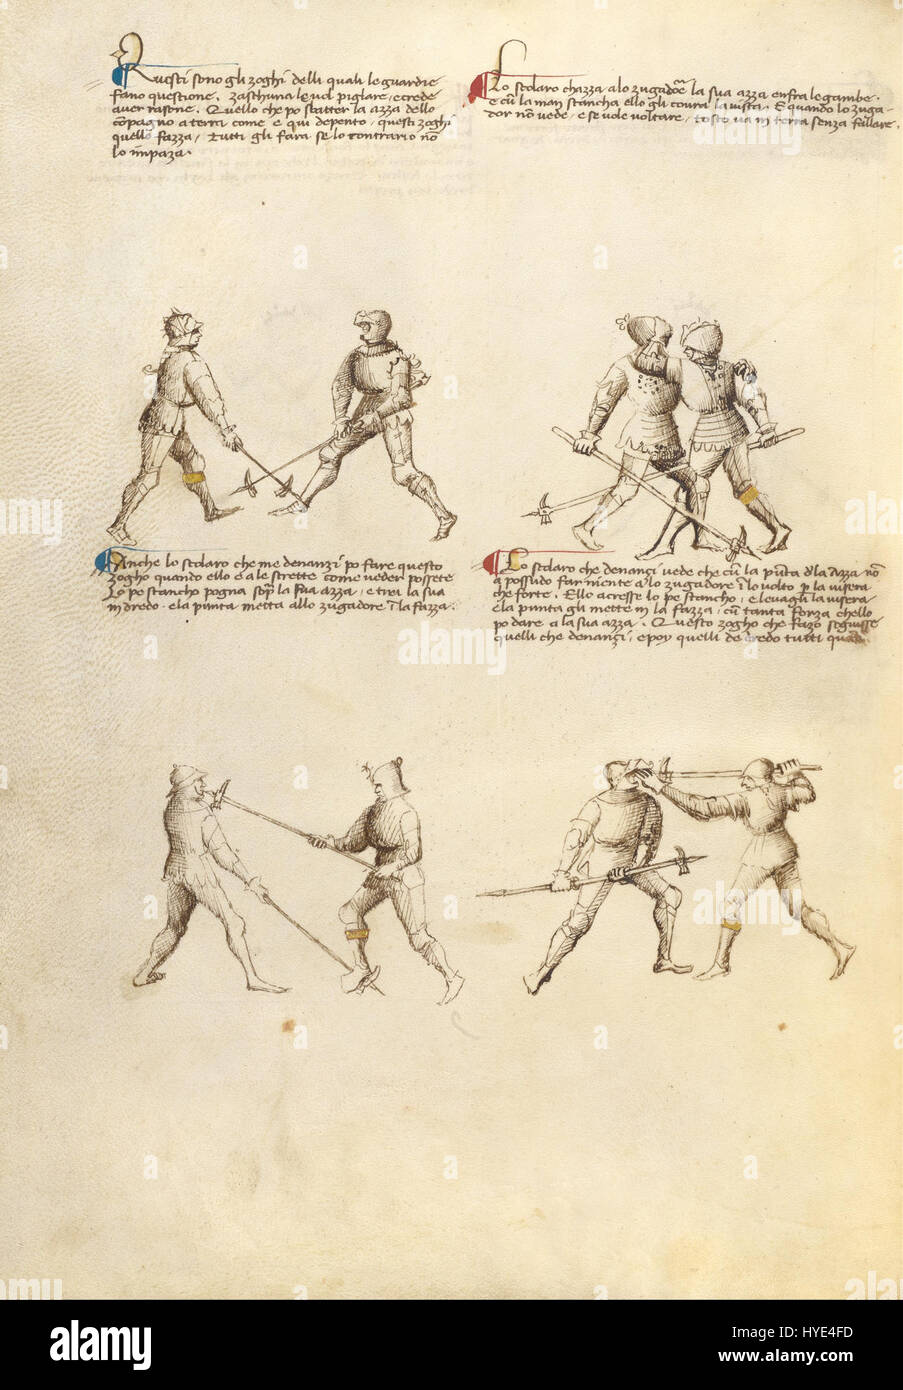 Questi sono gli zoghi delli quali le guardie
fano questione. zaschuna le vol piglare, e crede
aver rasone. Quello che po sbatter la azza dello
compagno a terra come e qui depento, questi zoghi
quello fazza, tutti gli fara se lo contrario nō
lo impaza.
Lo scolaro chazza a lo zugadore la sua azza enfra le gambe.
e cū la man stancha ello gli covra la vista. E quando lo zuga-
dor nō vede, e se vole voltare, tosto va in terra senza fallare.
Anche lo scolaro che me denanzi po fare questo
zogho quando ello e a le strette come veder possete
Lo pe stancho pogna sop la sua azza, e trei la sua
indredo. e la punta metta allo zugadore ī la fazza.
Lo scolaro che denançi vede che cū la pūta dla azza nō
a possudo far niente a lo zugadore ī lo volto p la visera
che forte. Ello acresse lo pe stancho, e levagli la visera
e la punta gli mette in la fazza, cū tanta forza chello
po dare a la sua azza. Questo zogho che fazo seguisse
quelli che denançi, e poy quelli de credo tutti quanti
alamy
a
alamy
Image ID: HYE4FD
www.alamy.com